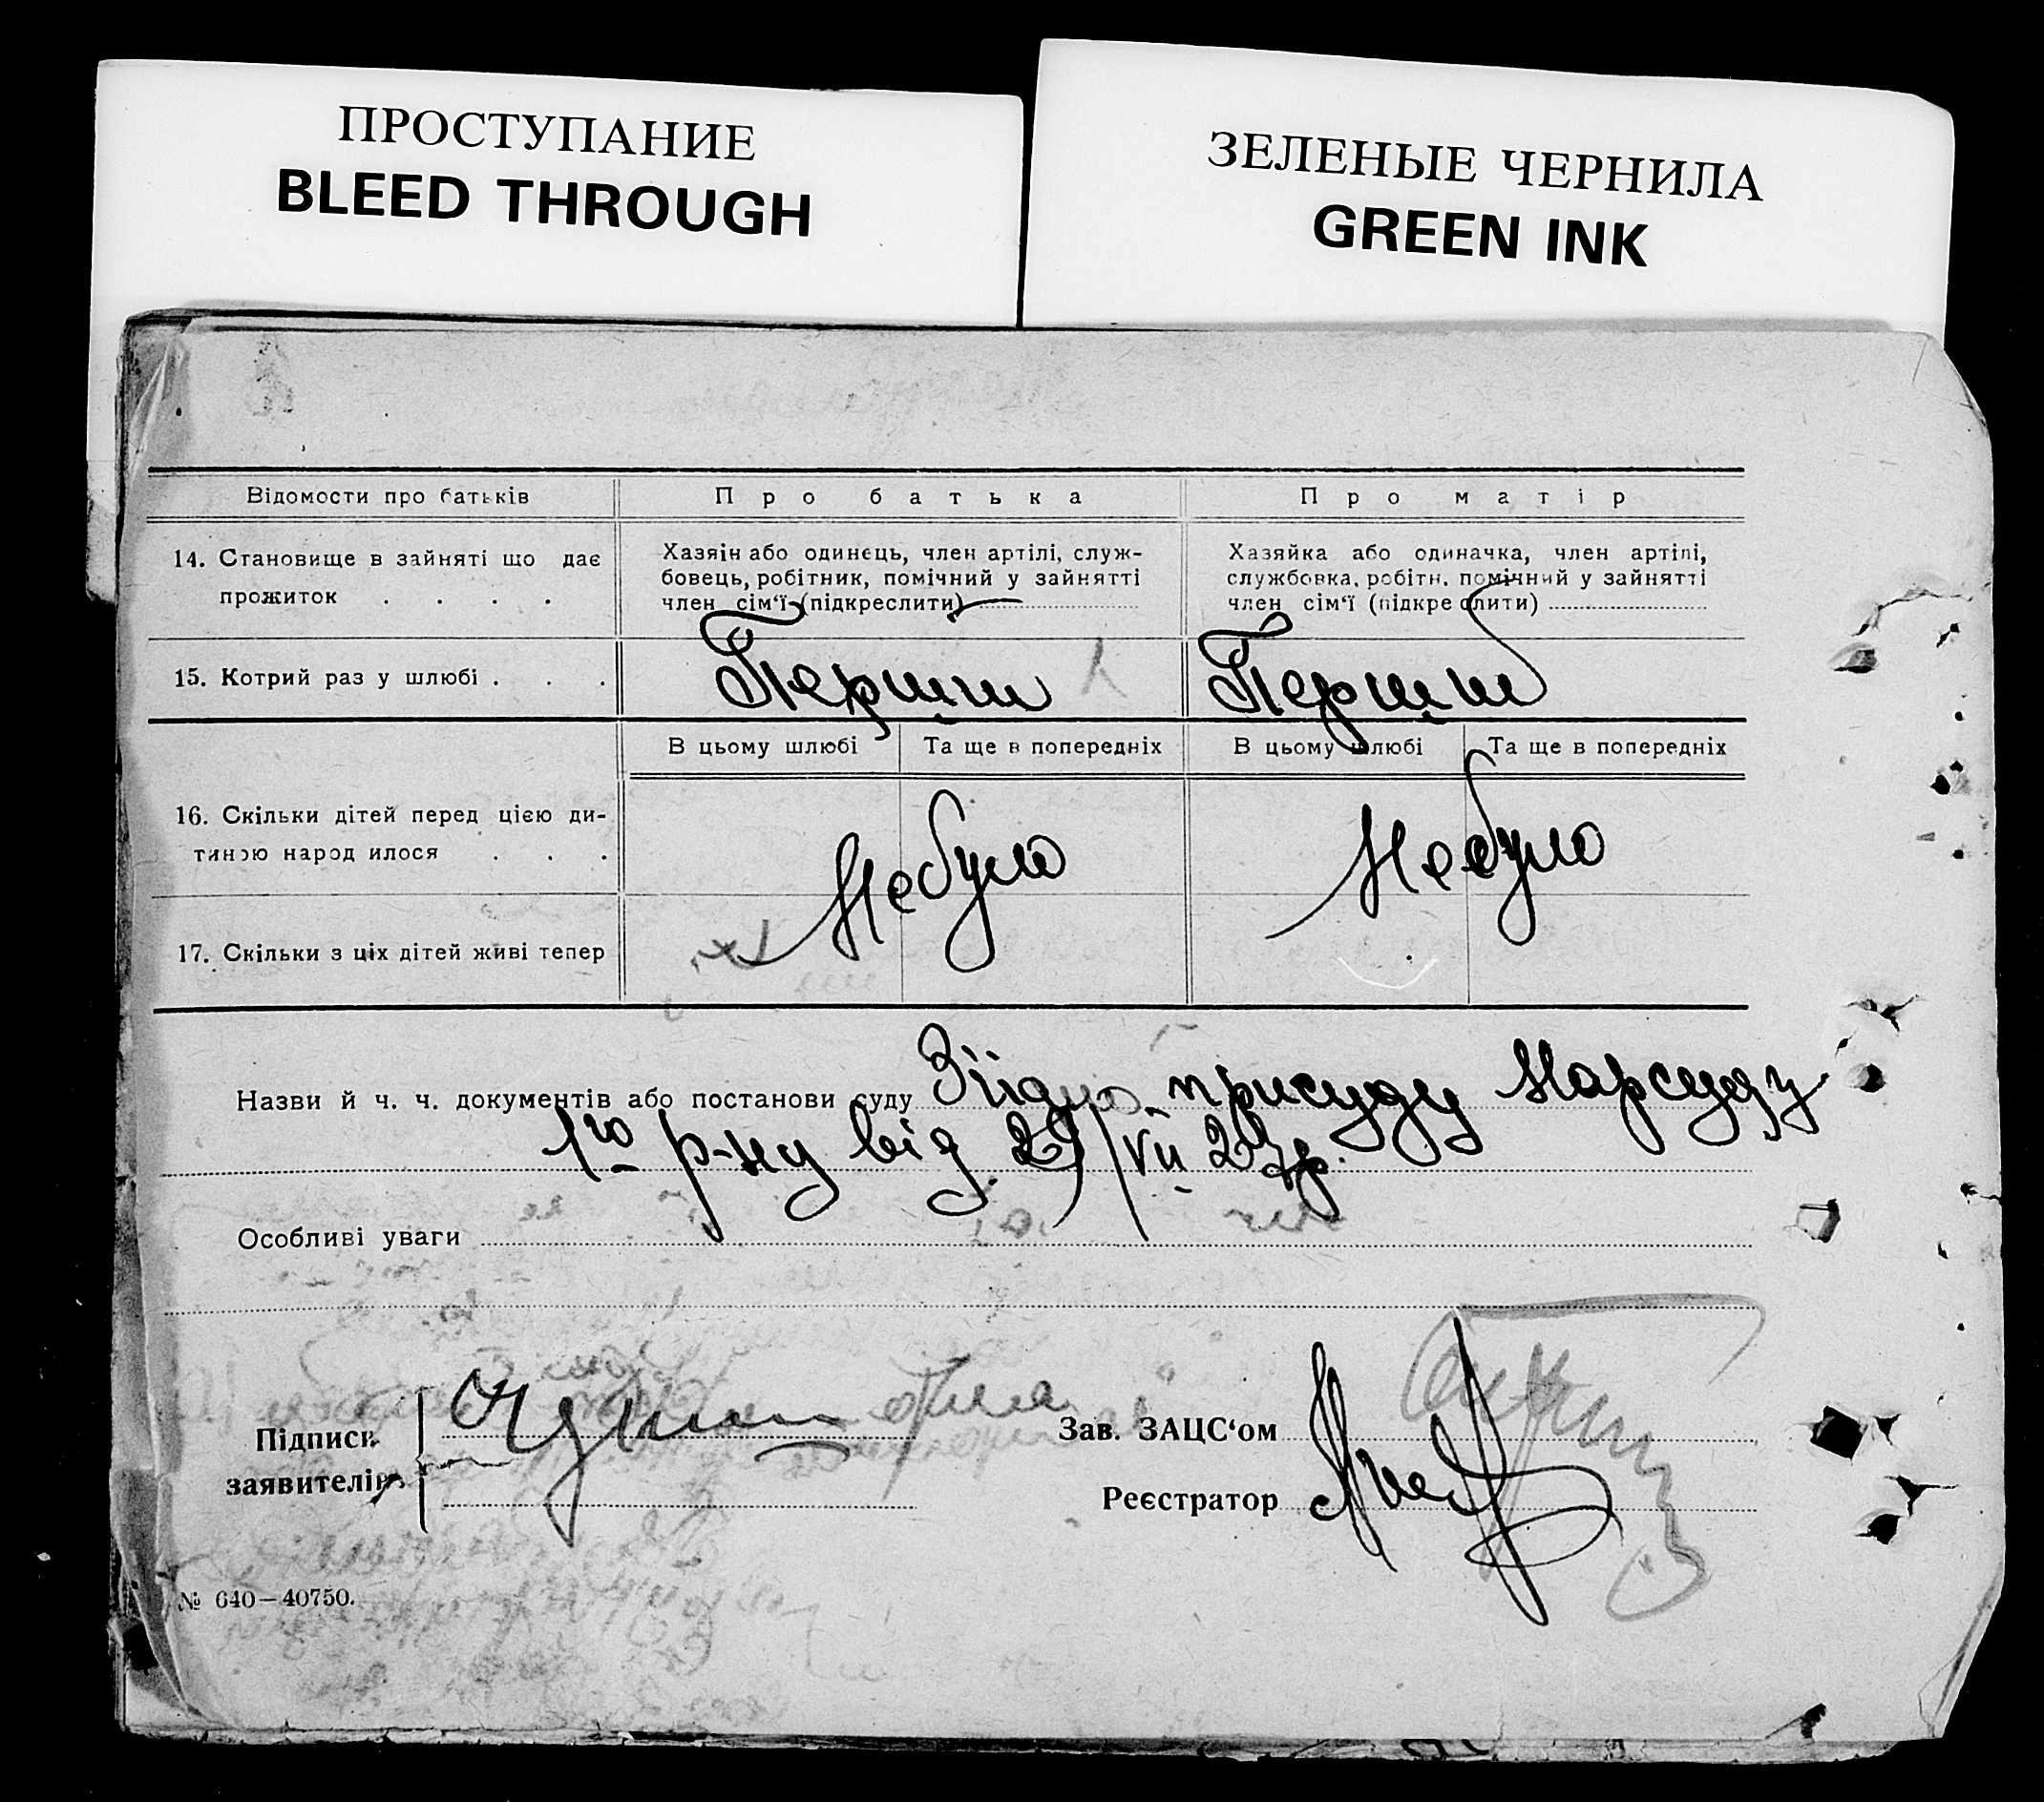 ПРОСТУПАНИЕ
BLEED THROUGH
ЗЕЛЕНЫЕ ЧЕРНИЛА
GREEN INK
Відомости про батьків
Про батька
Про матір
14. Становище в зайняті що дає
прожиток . . . .
Хазяін або одинець, член артілі, служ-
бовець, робітник, помічний у зайнятті
член сім‘ї (підкреслити)
Хазяйка або одиначка, член артілі,
службовка, робітн. помічний у зайнятті
член сім‘ї (підкреслити)
15. Котрий раз у шлюбі . . .
Перший
Перший
В цьому шлюбі
Та ще в попередніх
В цьому шлюбі
Та ще в попередніх
16. Скільки дітей перед цією ди-
тиною народилося . . .
Небуло
Небуло
17. Скільки з ціх дітей живі тепер
Назви й ч. ч. документів або постанови суду Згідно присуду Нарсуду
1го р-ну від 29/VII 27р.
Особливі уваги
Підписи
заявителів
Зав. ЗАЦС‘ом
Реєстратор
№ 640—40750.